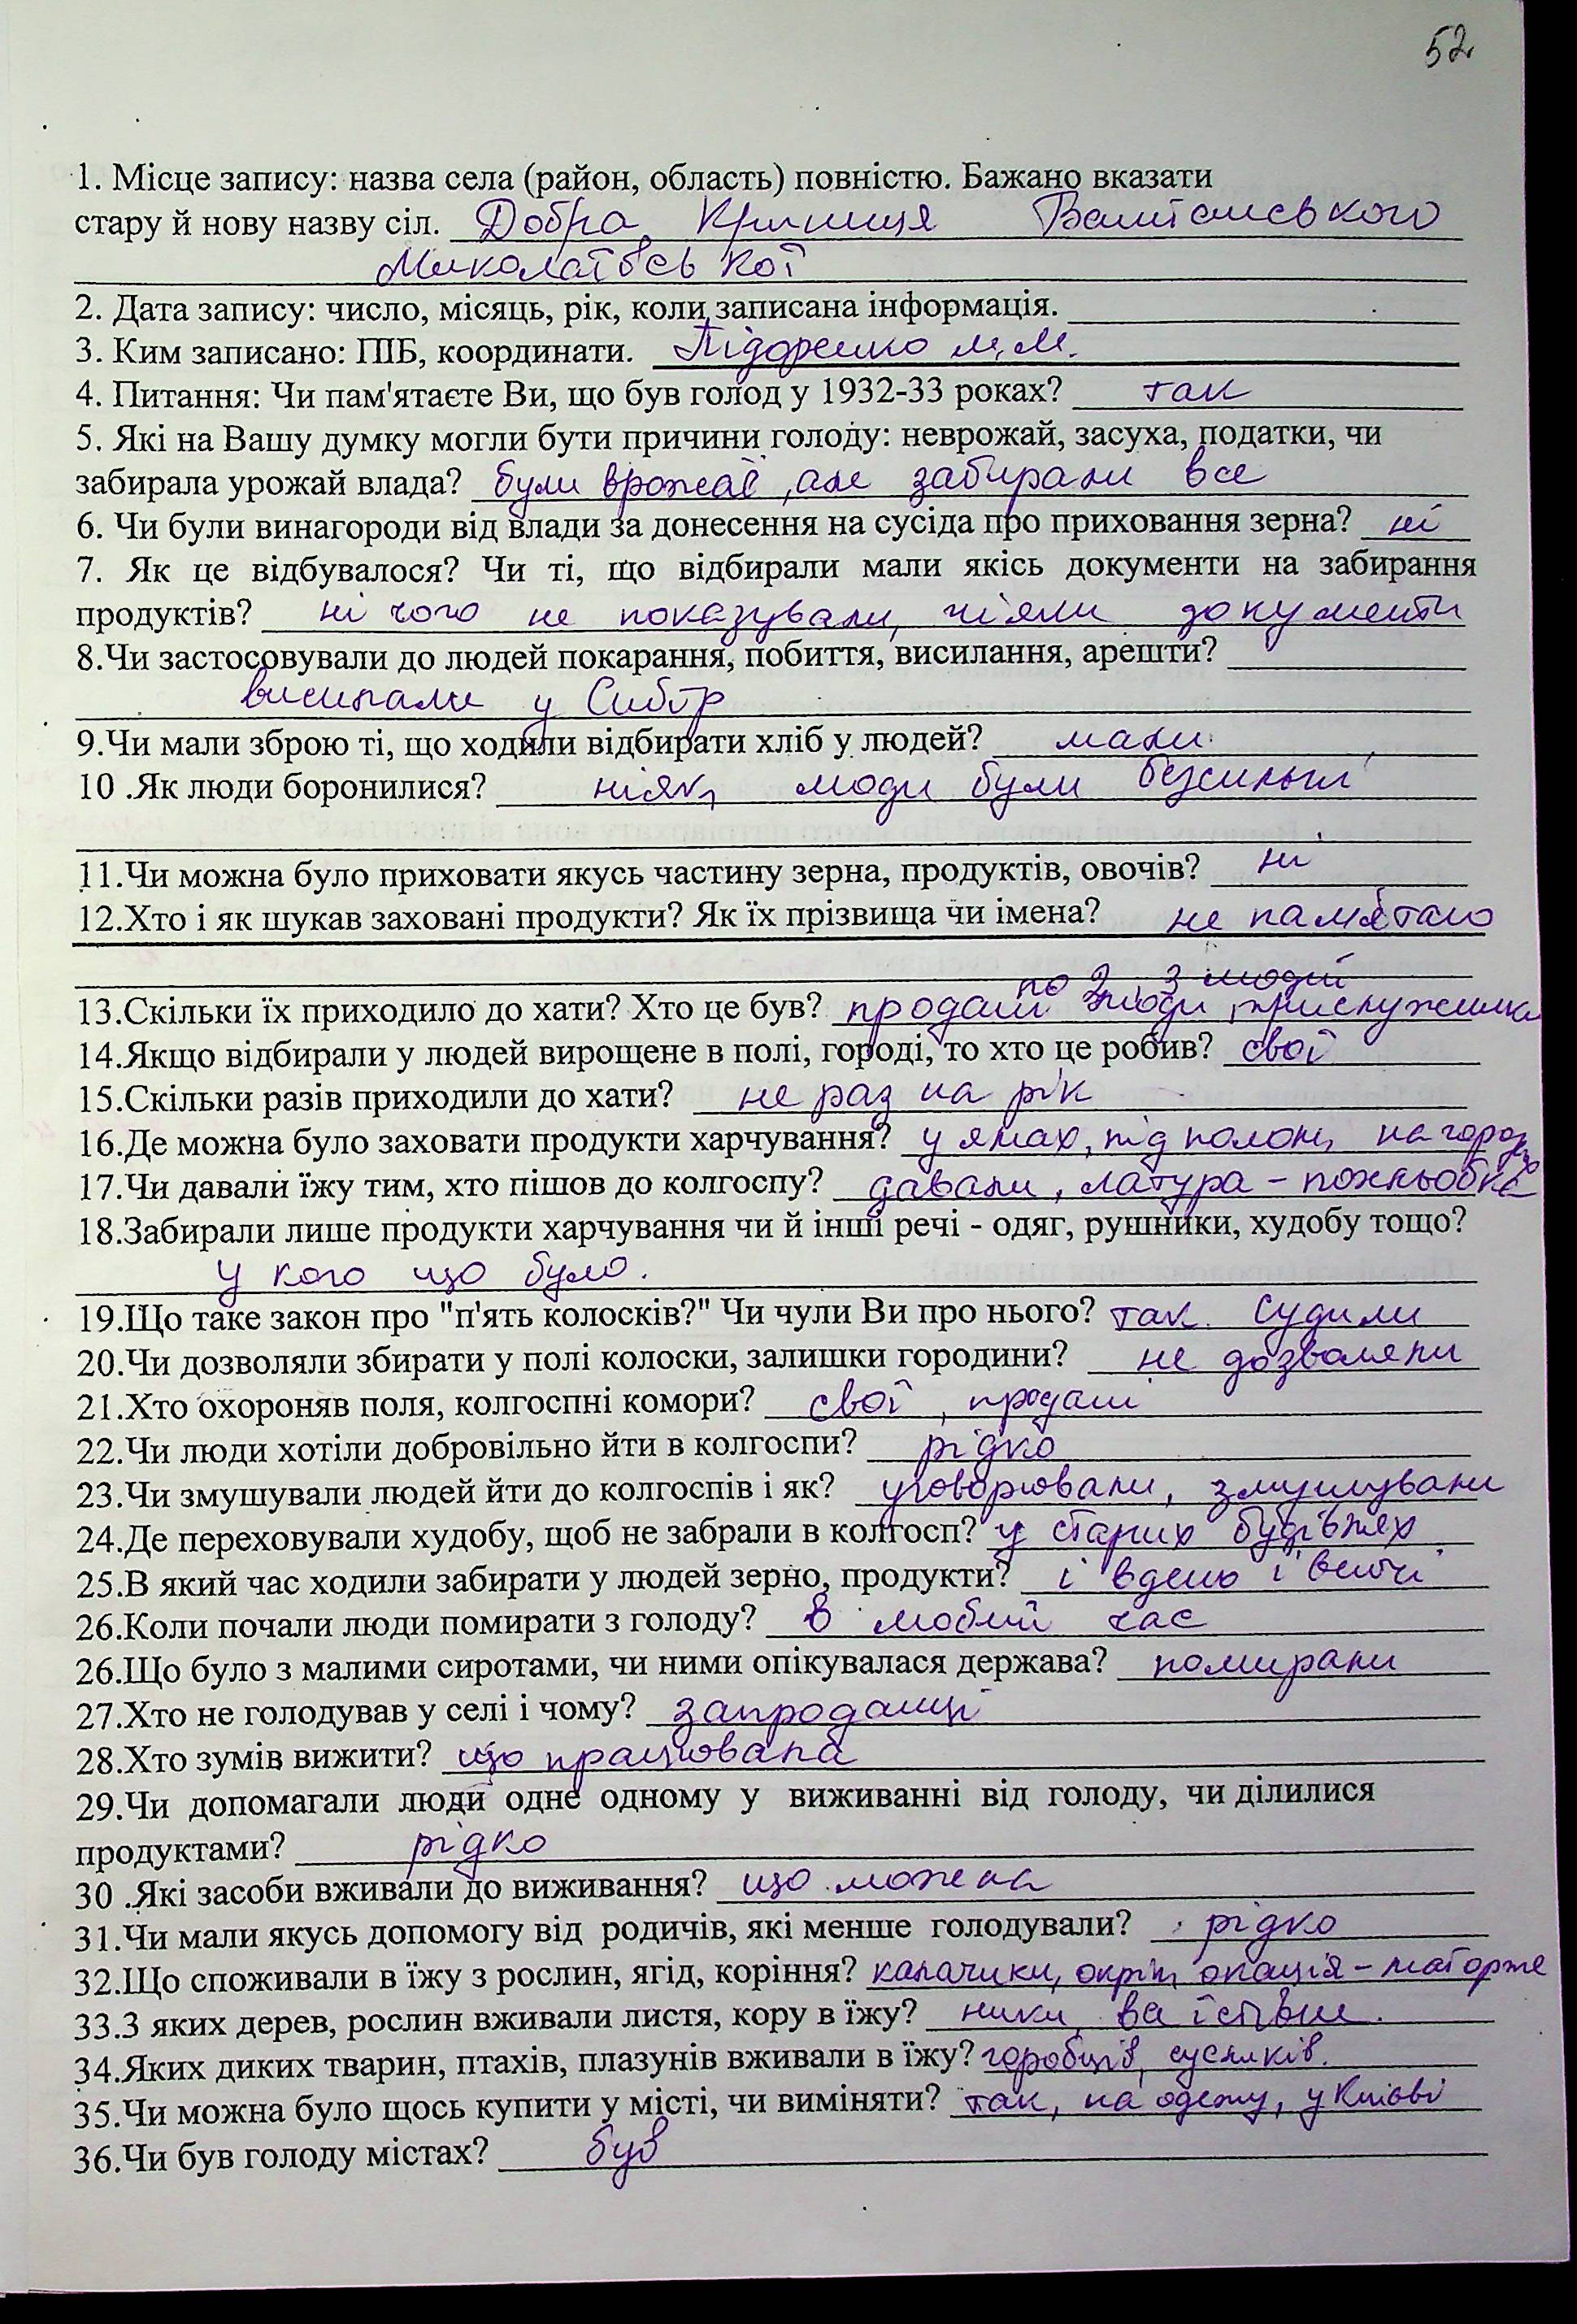 52
1. Місце запису: назва села (район, область) повністю. Бажано вказати
стару й нову назву сіл. Добра Криниця Баштанського
Миколаївської
2. Дата запису: число, місяць, рік, коли записана інформація.
3. Ким записано: ПІБ, координати. М.М.
4. Питання: Чи пам'ятаєте Ви, що був голод у 1932-33 роках? так
5. Які на Вашу думку могли бути причини голоду: неврожай, засуха, податки, чи
забирала урожай влада? були врожаї, але забирали все
6. Чи були винагороди від влади за донесення на сусіда про приховання зерна? ні
7. Як це відбувалося? Чи ті, що відбирали мали якісь документи на забирання
продуктів? ні чого не показували, ніяки документи
8.Чи застосовували до людей покарання, побиття, висилання, арешти?
висилали у Сибір
9.Чи мали зброю ті, що ходили відбирати хліб у людей? мали
10 .Як люди боронилися? ніяк, люди були безсильні
11.Чи можна було приховати якусь частину зерна, продуктів, овочів? ні
12.Хто і як шукав заховані продукти? Як їх прізвища чи імена? не пам'ятаю
по 2, 3 людей
13.Скільки їх приходило до хати? Хто це був? продані люди, прислужники
14.Якщо відбирали у людей вирощене в полі, городі, то хто це робив? свої
15.Скільки разів приходили до хати? не раз на рік
16.Де можна було заховати продукти харчування? у ямах, під полом, на городі
17.Чи давали їжу тим, хто пішов до колгоспу? давали, латура -
18.Забирали лише продукти харчування чи й інші речі - одяг, рушники, худобу тощо?
у кого що було.
19.Що таке закон про "п'ять колосків?" Чи чули Ви про нього? так. Судили
20.Чи дозволяли збирати у полі колоски, залишки городини? не дозволяли
21.Хто охороняв поля, колгоспні комори? свої, продані
22.Чи люди хотіли добровільно йти в колгоспи? рідко
23.Чи змушували людей йти до колгоспів і як? уговорювали, змушували
24.Де переховували худобу, щоб не забрали в колгосп? у старих будівлях
25.В який час ходили забирати у людей зерно, продукти? і вдень і вночі
26.Коли почали люди помирати з голоду? в любий час
26.Що було з малими сиротами, чи ними опікувалася держава? помирали
27.Хто не голодував у селі і чому? запроданці
28.Хто зумів вижити? що працювала
29.Чи допомагали люди одне одному у виживанні від голоду, чи ділилися
продуктами? рідко
30 .Які засоби вживали до виживання? що можна
31.Чи мали якусь допомогу від родичів, які менше голодували? рідко
32.Що споживали в їжу з рослин, ягід, коріння? калачики, окріп, окація - маторже
33.З яких дерев, рослин вживали листя, кору в їжу? ники, все їстівне.
34.Яких диких тварин, птахів, плазунів вживали в їжу? горобців, сусликів.
35.Чи можна було щось купити у місті, чи виміняти? так, на одежу, у Києві
36.Чи був голоду містах? був